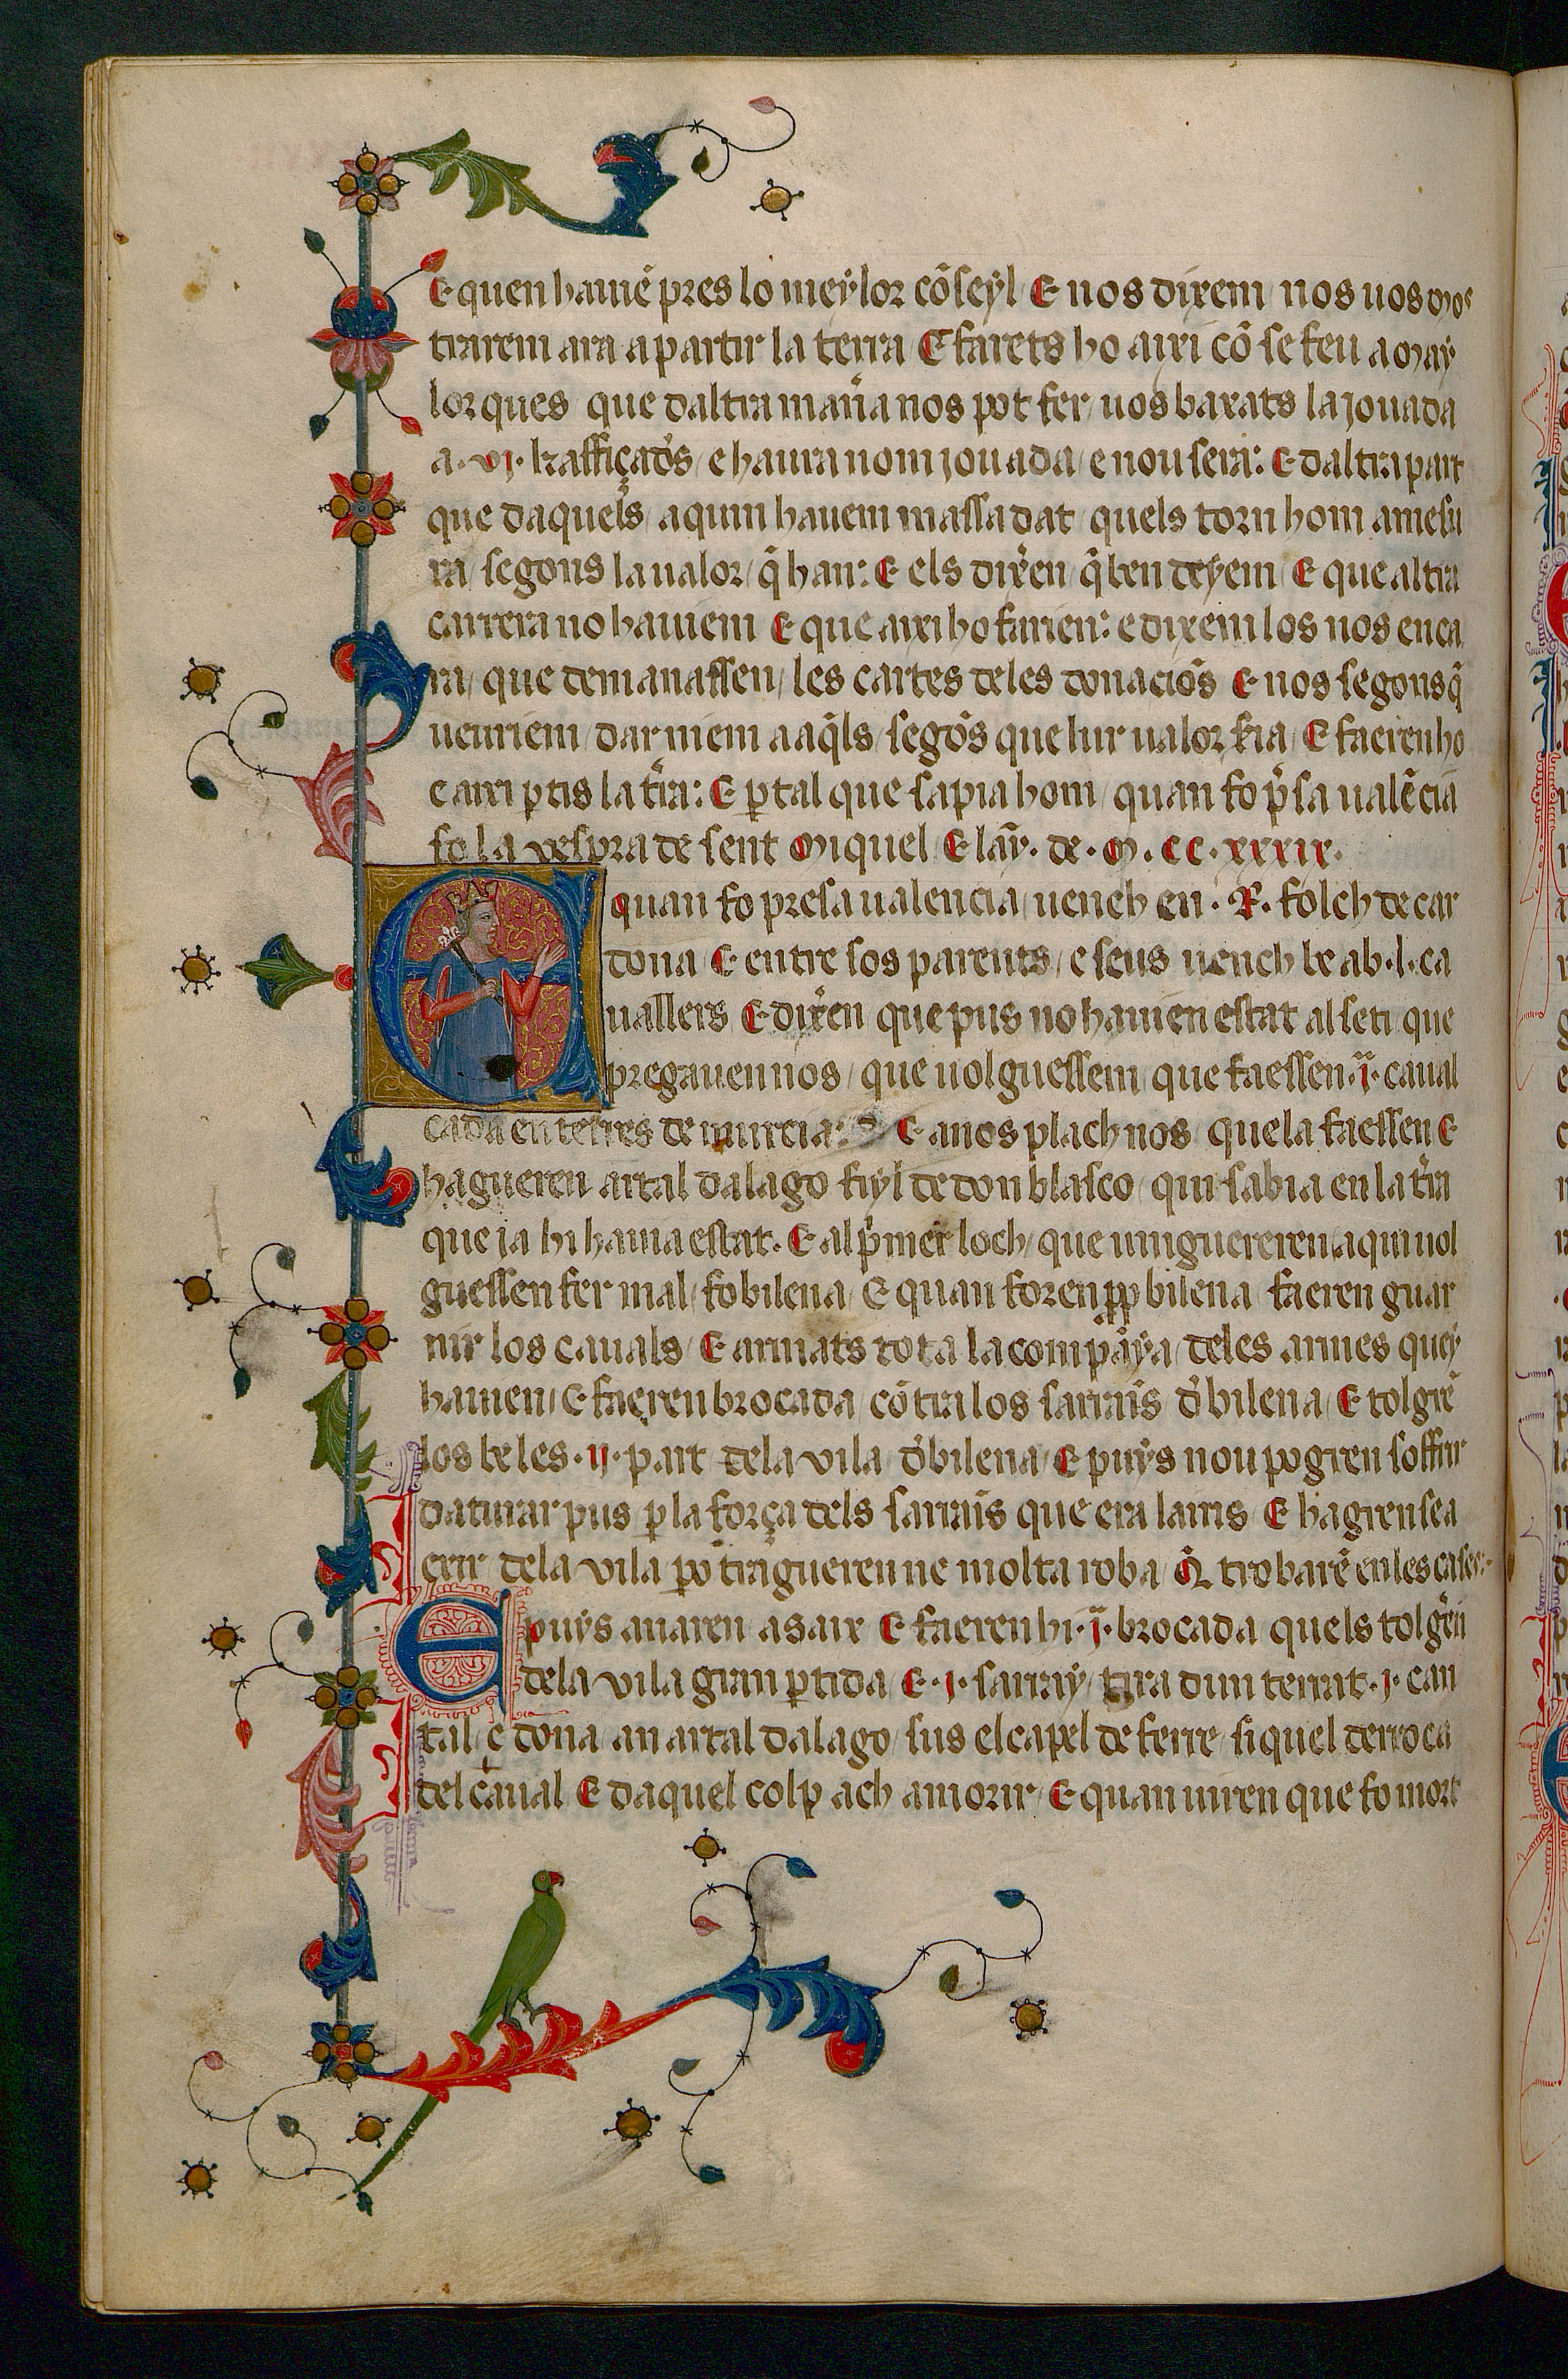 E quen hauiē pres lo meylor cōseyl E nos dixem nos uos mos
trarem ara a partir la terra E farets ho axi cō se feu a may
lorques que daltra maña nos pot fer uos baxats la jouada
a .vj. kaffiçad's e haura nom jouada e nou sera: E daltra part
que daquels aquin hauem massa dat quels torn hom a mesu
ra segons la ualor q̄ han: E els dixeren q̄ ben deyem E que altra
carrera no hauiem E que axi ho farien: e dixem los nos enca
ra que demanassen les cartes de les donaciōs E nos segons q̄
ueuriem dar niem a aq̄ls segōs que lur ualor fra E faeren ho
e axi ptis la tr̄a: E ꝑ tal que sapia hom quan fo p̄sa ualēcia
fo la vespra de sent Miquel E lāy. de .M.CC.xxxix.
E quan fo presa ualencia uench en .R. folch de car
dona E entre sos parents e seus uench be ab .l. ca
uallers E dixeren que pus no hauien estat al seti que
pregauen nos que uolguessem que faessen .j.ª caual
cada en terres de murcia: E a nos plach nos que la faessen E
hagueren artal dalago fiyl de don blasco qui sabia en la tr̄a
que ja hi hauia estat. E al p̄mer loch que uinguereren aqui uol
guessen fer mal fo bilena E quan foren ꝓp bilena faeren guar
nir los cauals E armats tota la compāya de les armes quey
hauien E faeren brocada cōtra los sarrains d'bilena E tolgrē
los be les .ij. part de la vila d'bilena E puys nou pogren soffrir
daturar pus ꝑ la força dels sarrains que era lains E hagren sea
exir de la vila ꝑo tragueren ne molta roba Q̄ trobarē en les cases
E puys anaren a saix E faeren hi .j.ª brocada quels tolgren
de la vila gran ꝑtida E .j. sarray tira dun terrat .j. can
tal e dona an artal dalago sus el capel de ferre si quel derroca
del caual E daquel colp ach a morir E quan uiren que fo mort